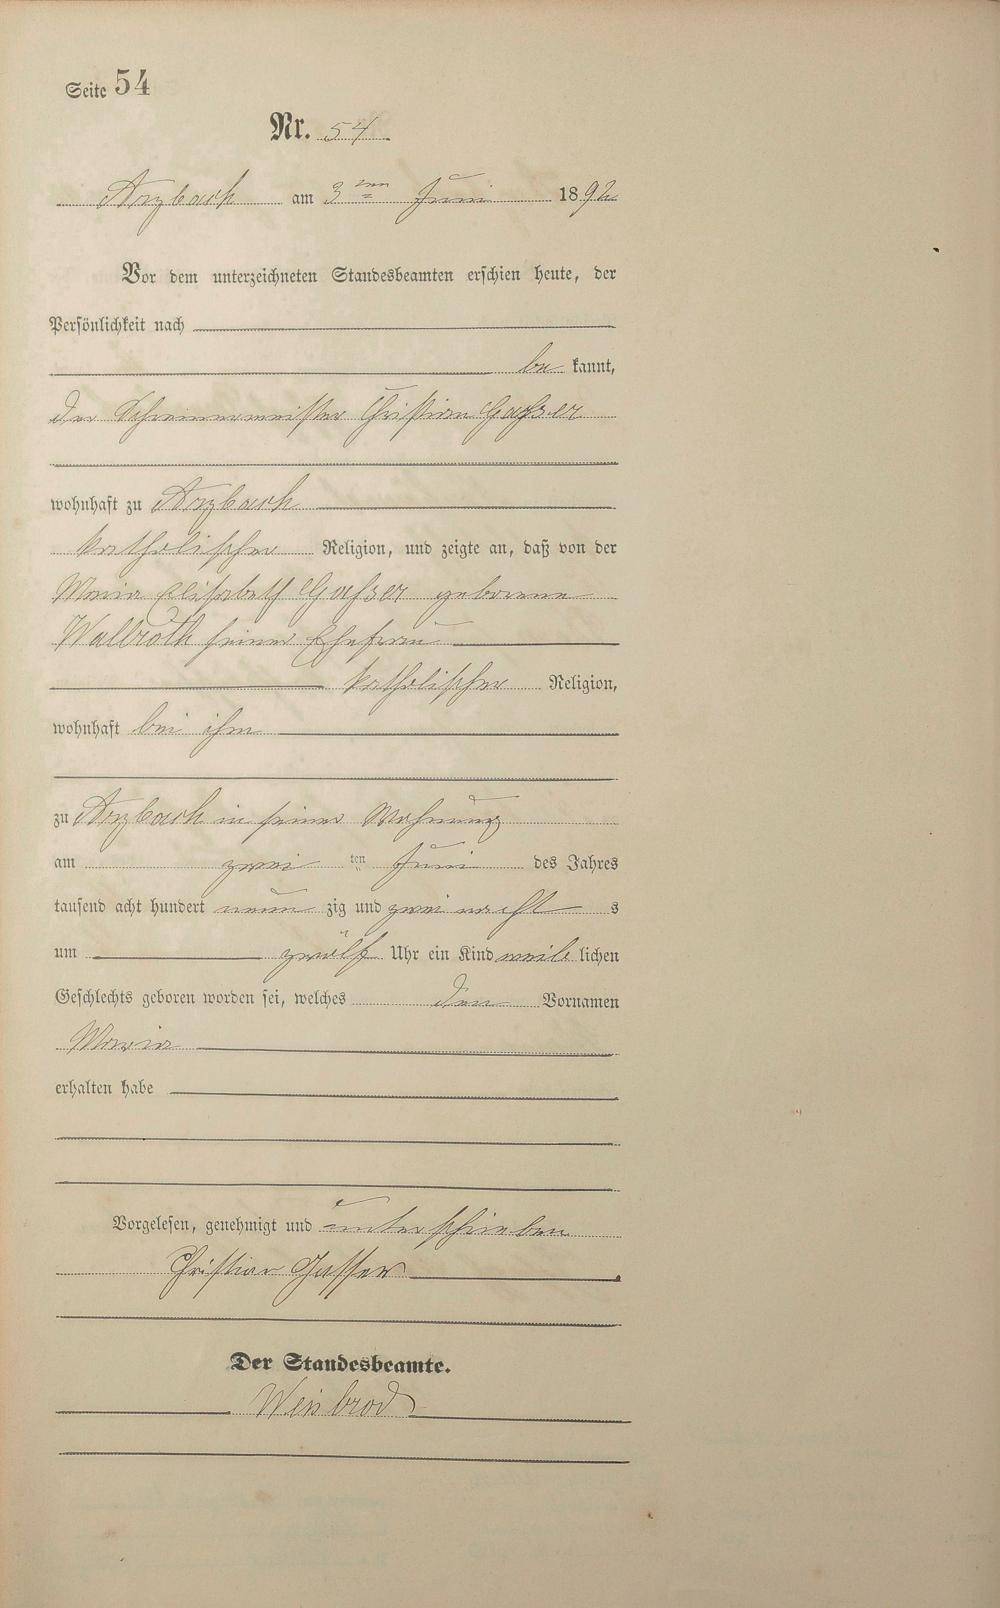 Seite 54
Nr. 54
Arzbach am 3ten Juni 1892
Vor dem unterzeichneten Standesbeamten erschien heute, der
Persönlichkeit nach
be kannt,
der Schreinermeister Christian Gasser
wohnhaft zu Arzbach
katholischer Religion, und zeigte an, daß von der
Maria Elisabeth Gasser geborene
Wallroth seiner Ehefrau
katholischer Religion,
wohnhaft bei ihm
zu Arzbach in seiner Wohnung
am zwei ten Juni des Jahres
tausend acht hundert neun zig und zwei nacht s
um zwölf Uhr ein Kind weib lichen
Geschlechts geboren worden sei, welches den Vornamen
Maria
erhalten habe
Vorgelesen, genehmigt und unterschrieben
Christian Gasser
Der Standesbeamte.
Weisbrod